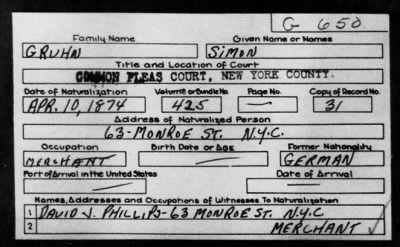 G 650
Family Name Given Name or Names
GRUHN SIMON
Title and Location of Court
COMMON PLEAS COURT, NEW YORK COUNTY.
Date of Naturalization Volume or Bundle No. Page No. Copy of Record No.
APR. 10, 1874 425 — 31
Address of Naturalized Person
63-MONROE ST. N.Y.C.
Occupation Birth Date or Age Former Nationality
MERCHANT — GERMAN
Port of Arrival in the United States Date of Arrival
— —
Names, Addresses and Occupations of Witnesses To Naturalization
1 DAVID J. PHILLIPS-63 MONROE ST. N.Y.C.
2 MERCHANT